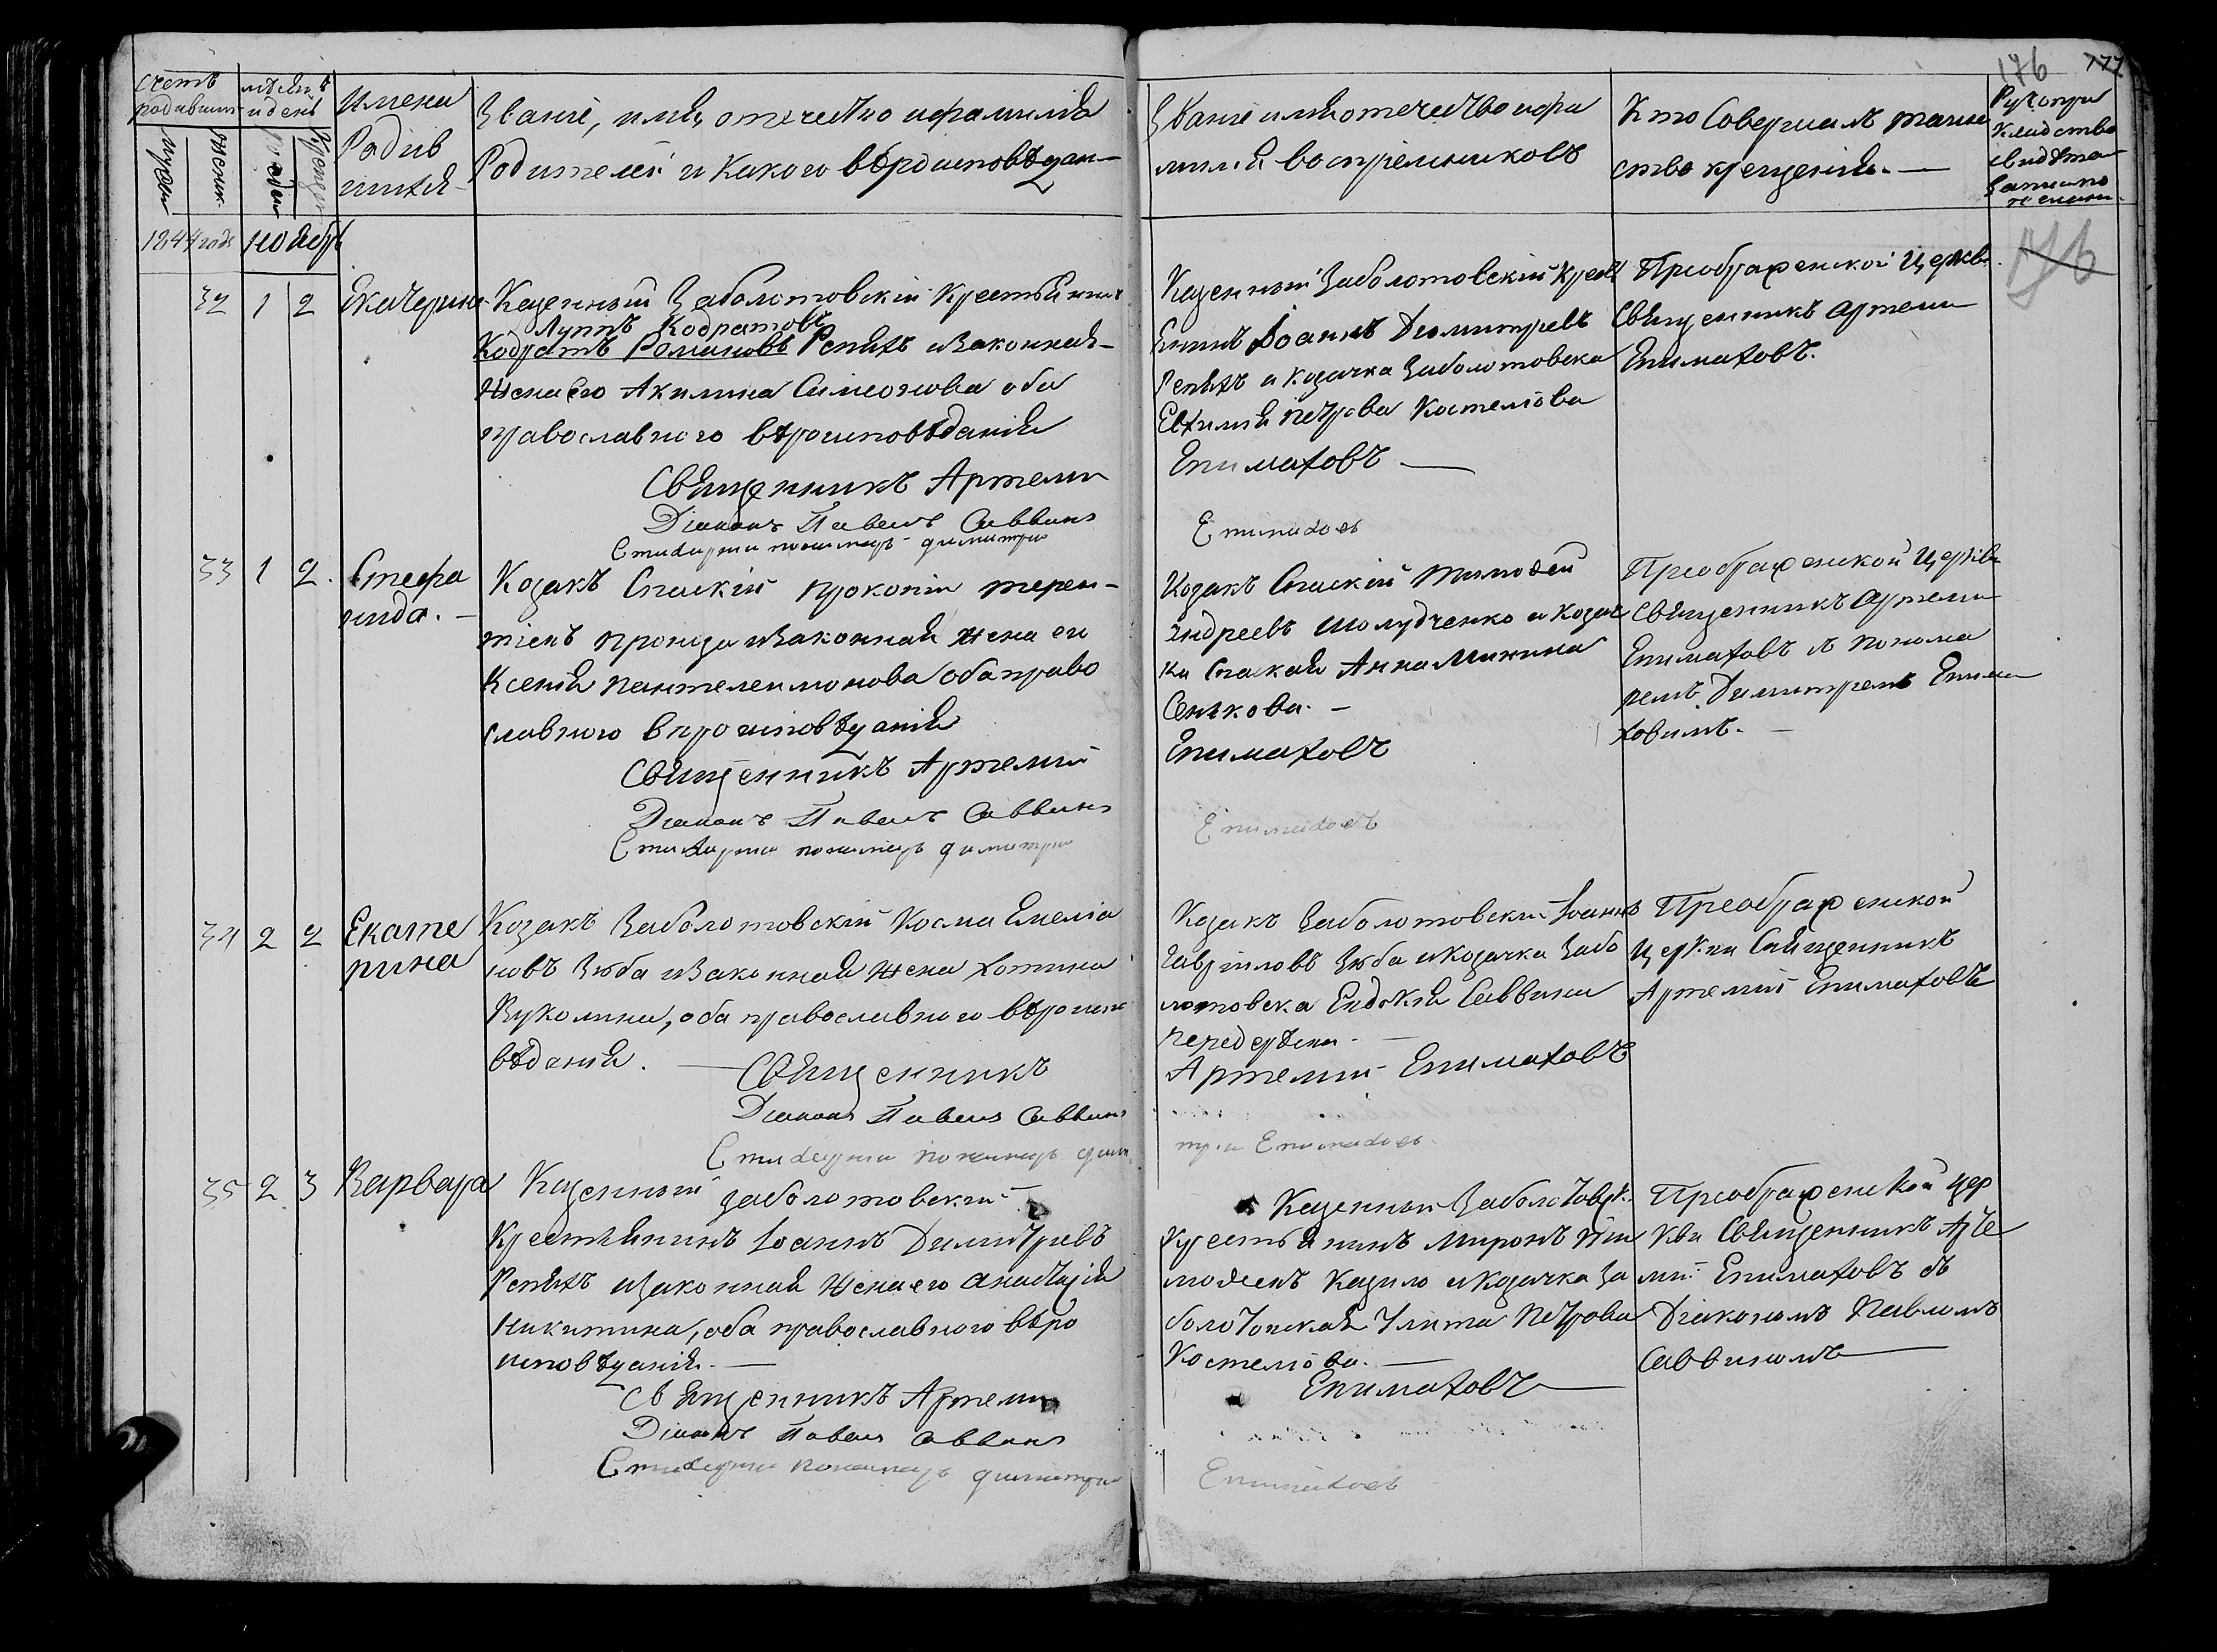 176 177
Счетъ
родивших
мѣсяцъ
и день
Имена
Родив
шихся
Званіе, имя, отечество и фамилія
Родителей и какого вѣроисповѣдан-
мужск
женск.
рожден
крещен
Званіе имя отечество и фа
милія воспріемниковъ
Кто совершалъ таин
ство крещенія. —
Рукопри
кладство
свидѣте
записи по
желани
1844 года ноябрь
176
32 1 2 Екатерина
Казенный Заболотовскій крестьянинъ
Луппъ Кодратовъ
Кодратъ Романовъ Репяхъ и законная
жена его Акилина Симеонова оба
православного вѣроисповѣданія
Священникъ Артеми
Діаконъ Павелъ Саввинъ
Стихарни пономарь димитри
Казенный Заболотовскій крест
янинъ Іоаннъ Димитревъ
Репяхъ и козачка Заболотовска
Евхимія Петрова Костемова
Епимаховъ —
Епимахов
Преображенской церкви
Священникъ Артеми
Епимаховъ.
33 1 2. Стефа
нида. —
Козакъ Спаскій Прокопій Терен-
тіевъ Проница и законная жена его
Ксенія Пантелеимонова оба право
славного вѣроисповѣданія
Священникъ Артемий
Діаконъ Павелъ Саввинъ
Стихарни пономарь димитри
Козакъ Спаскій Тимофей
Андреевъ Шолудченко и козач
ка Спаская Анна Минина
Сенкова. —
Епимаховъ
Епимаховъ
Преображенской церкви
Священникъ Артеми
Епимаховъ с понома
ремъ Димитремъ Епима
ховимъ. —
34 2 2 Екате
рина
Козакъ Заболотовскій Косма Емеліа
новъ Зюба и законная жена Хотина
Вуколина, оба православного вѣроиспо
вѣданія. — Священникъ
Діаконъ Павелъ Саввинъ
Стихарни пономарь дими
Козакъ Заболотовскій Іоаннъ
Гавріиловъ Зюба и козачка Забо
лотовска Евдокія Саввина
Передерѣена. —
Артемій Епимаховъ
три Епимахов.
Преображенской
церкви Священникъ
Артемій Епимаховъ
35 2 3 Варвара
Казенный заболотовский
Крестянинъ Іоаннъ Димитревъ
Репяхъ и законная жена его Анастасія
Никитина, оба православного вѣро
исповѣданія. —
Священникъ Артеми
Діаконъ Павелъ Саввинъ
Стихарни пономарь димитри
Казенный Заболотовск.
Крестьянинъ Миронъ Ти
мофеевъ Кацило и козачка За
болотовская Улита Петрова
Костемова. —
Епимаховъ —
Епимаховъ
Преображенской цер
кви Священникъ Арте
мій Епимаховъ съ
Діакономъ Павломъ
Саввиномъ